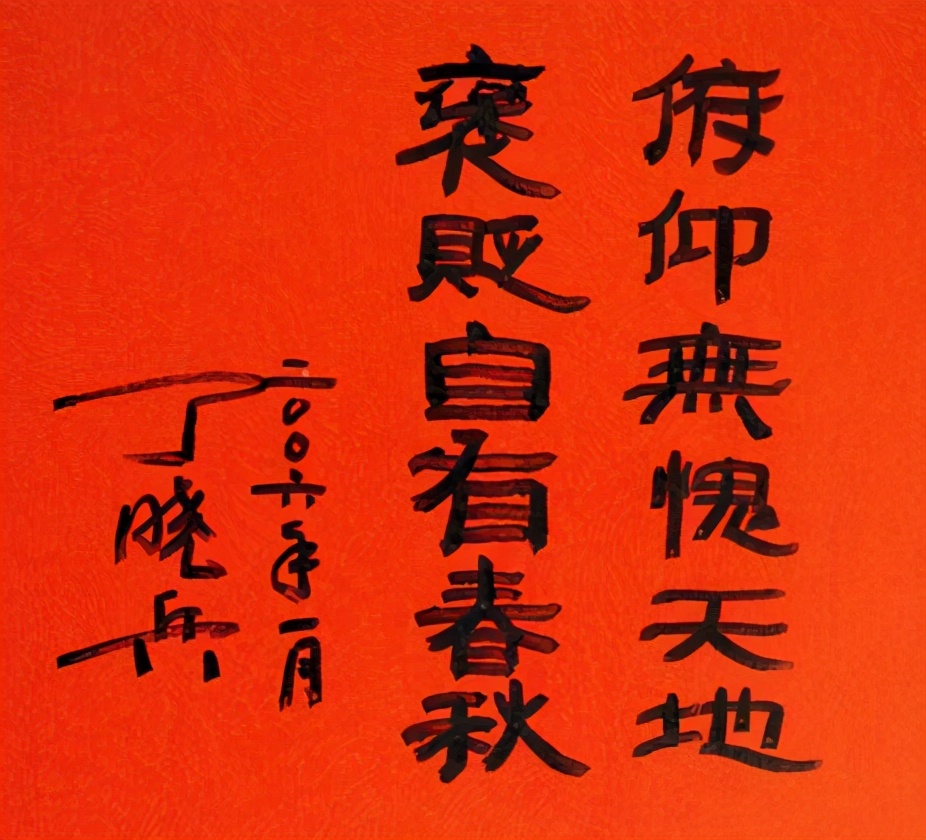 俯仰無愧天地
褒貶自有春秋
二〇〇六年一月
丁曉兵